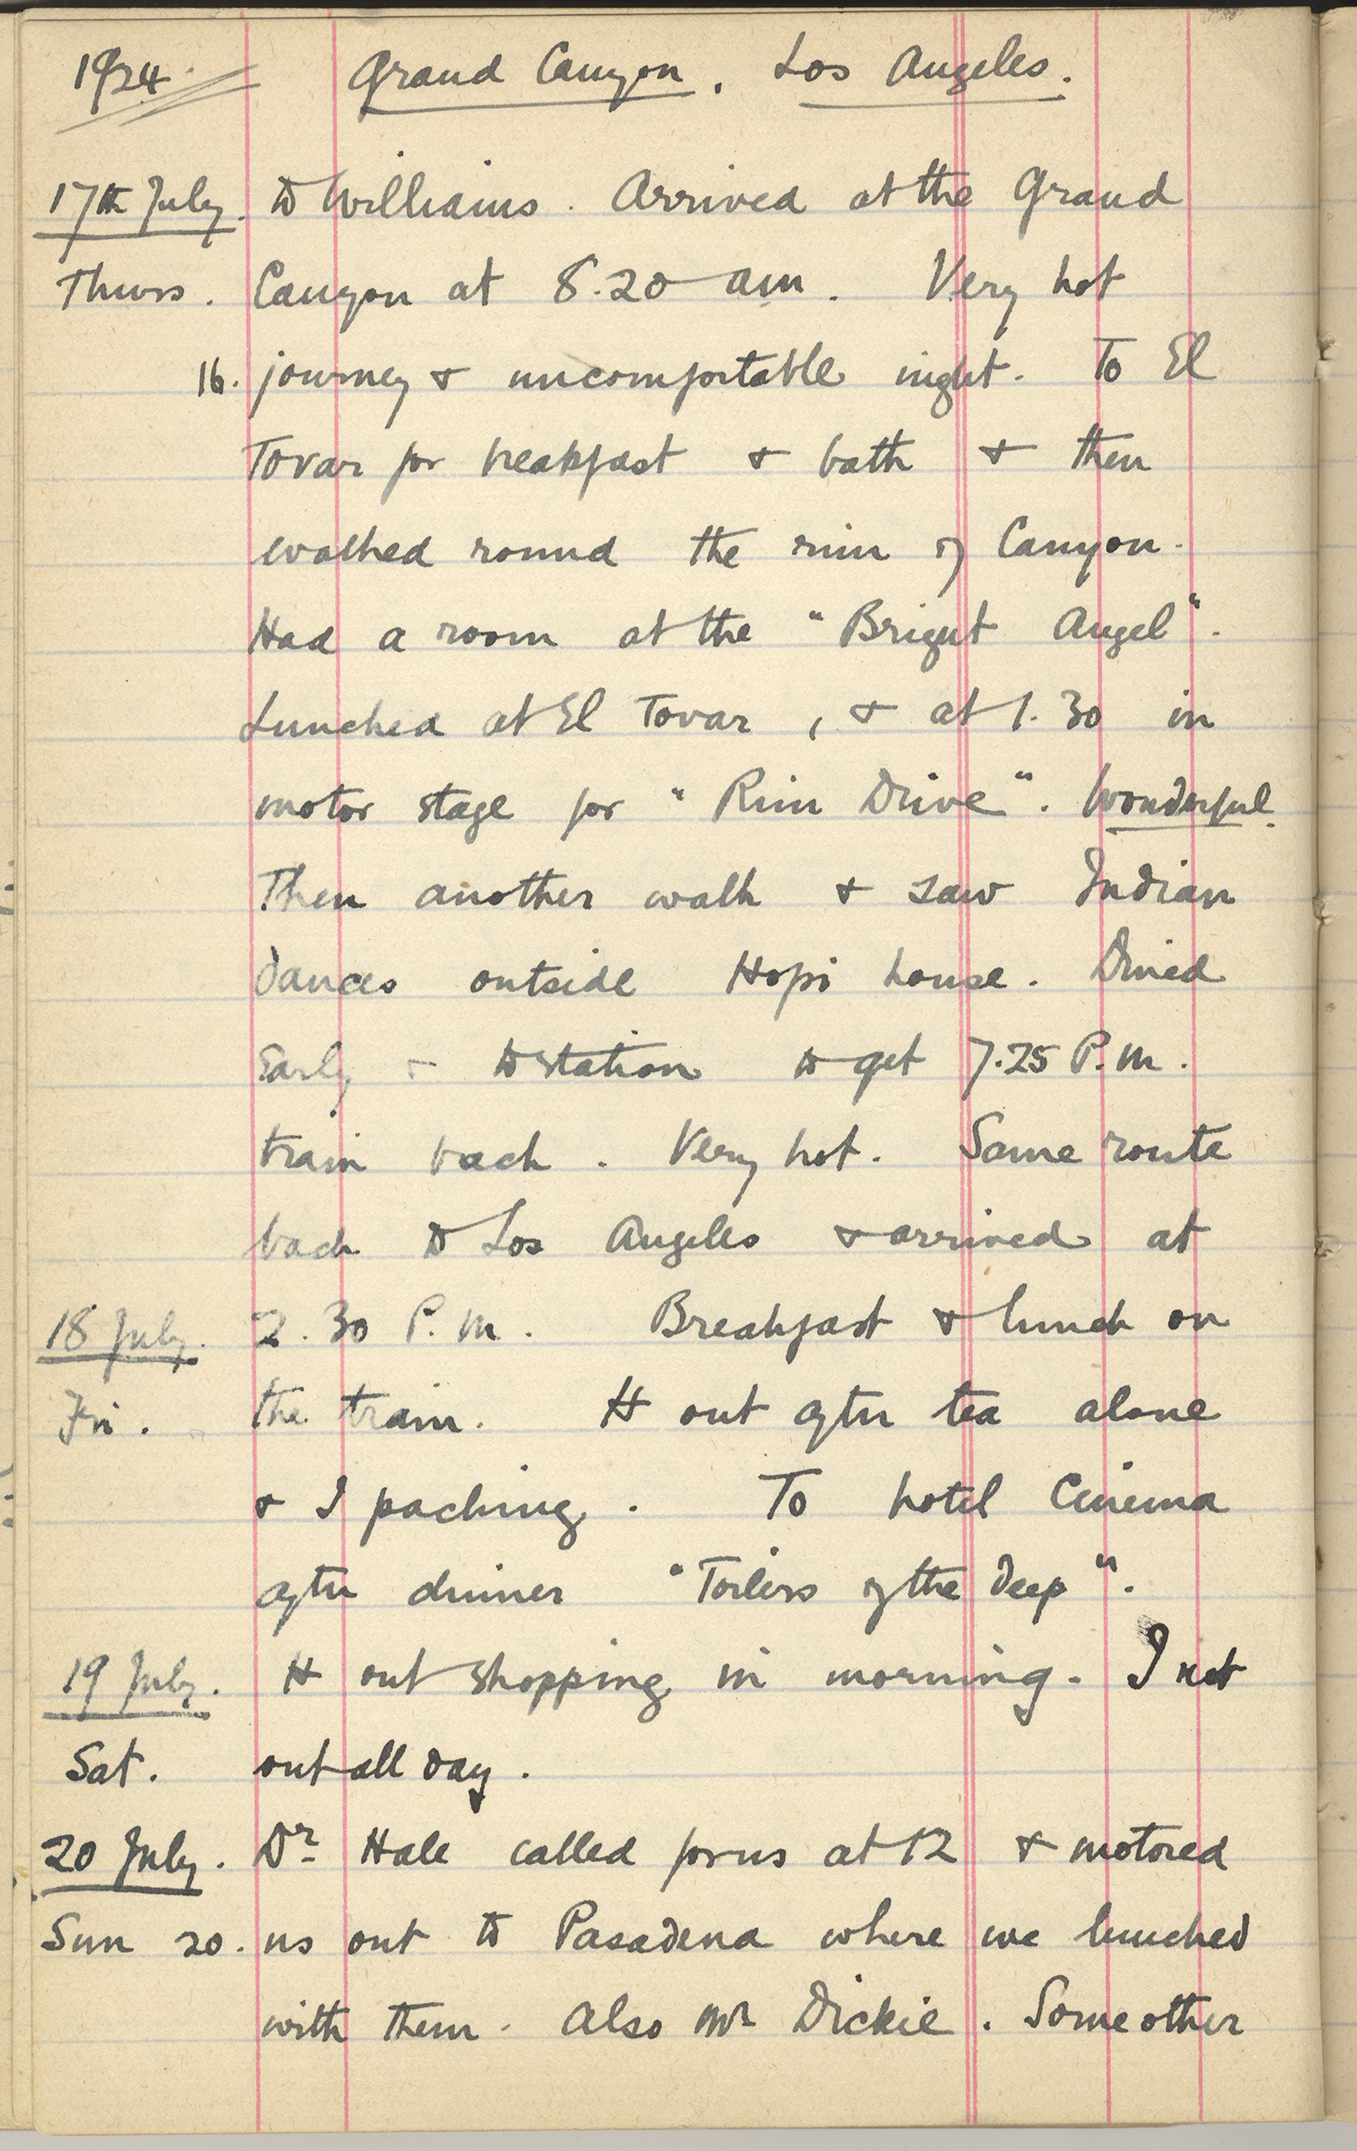 1924 Grand Canyon. Los Angeles.
17th July. to Williams. Arrived at the Grand
Thurs. Canyon at 8.20 am. Very hot
16. journey & uncomfortable night. To El
Tovar for breakfast & bath & then
walked round the rim of Canyon.
Had a room at the "Bright Angel".
Lunched at El Tovar, & at 1.30 in
motor stage for "Rim Drive". Wonderful.
Then another walk & saw Indian
dances outside Hopi house. Dined
Early & to station to get 7.25 P.M.
train back. Very hot. Same route
back to Los Angeles & arrived at
18 July. 2.30 P.M. Breakfast & lunch on
Fri. the train. H out after tea alone
& I packing. To hotel Cinema
after dinner "Toilers of the Deep".
19 July. H out shopping in morning. I not
Sat. out all day.
20 July. Dr Hale called for us at 12 & motored
Sun 20. us out to Pasadena where we lunched
with them. Also Mr Dickie. Some other